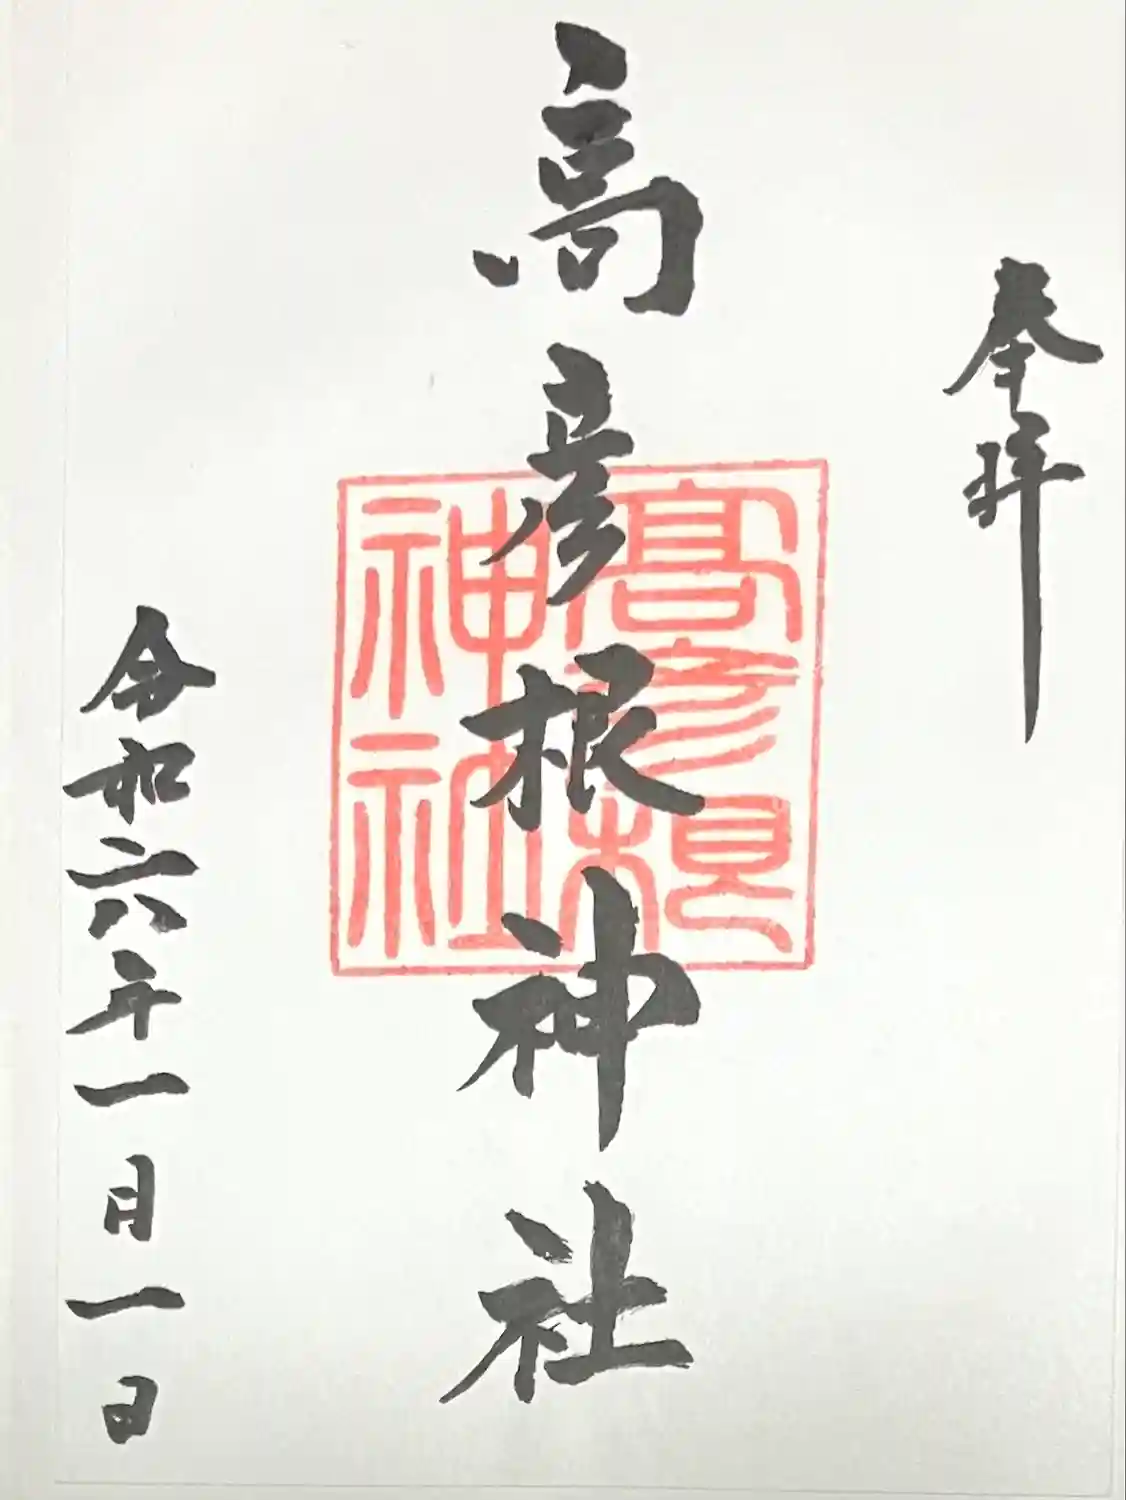 奉拝
高彦根神社
髙彦根
神社
令和六年一月一日